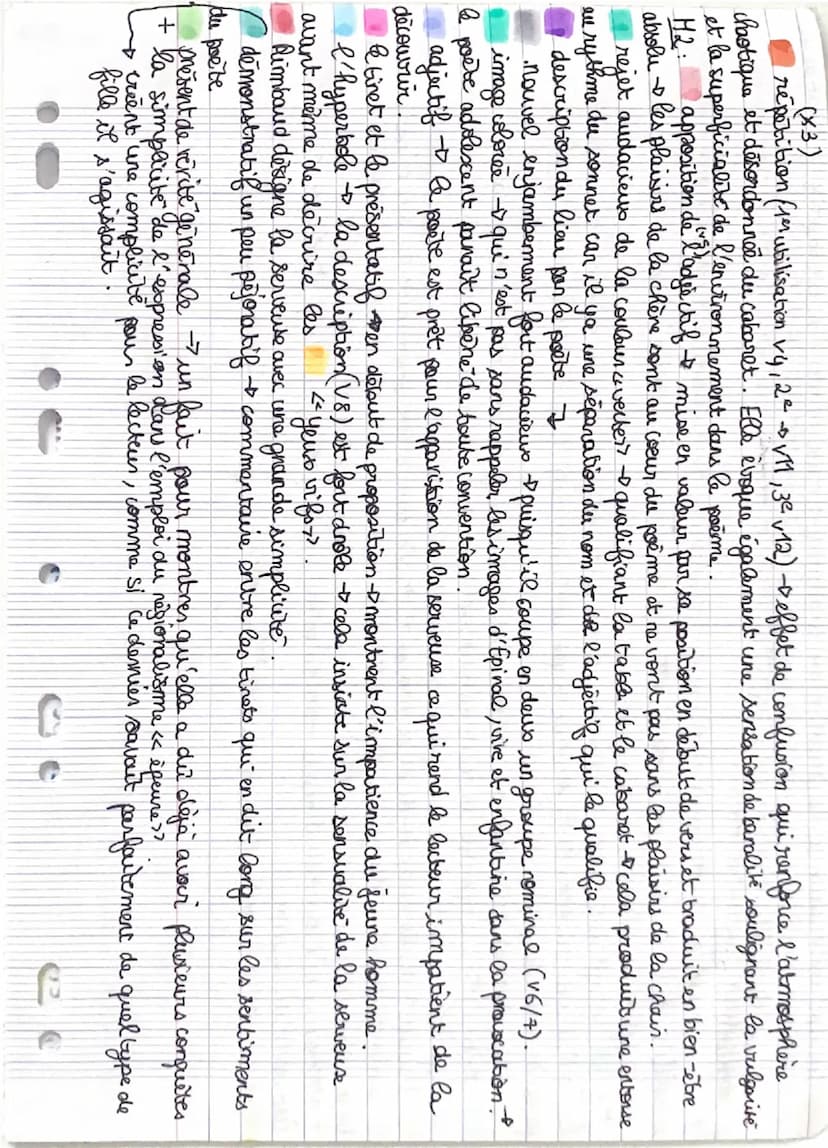 (x3)
répétition (1ère utilisation v4, 2e → v11, 3e v12) → effet de confusion qui renforce l'atmosphère
chaotique et désordonnée du cabaret. Elle évoque également une sensation de banalité soulignant la vulgarité
et la superficialité de l'environnement dans le poème.
M2: apposition de l'adjectif (v5) → mise en valeur par sa position en début de vers et traduit en bien-être
absolu → les plaisirs de la chère sont au coeur du poème et ne vont pas sans les plaisirs de la chair.
rejet audacieux de la couleur « verte » → qualifiant la table et le cabaret → cela produit une entorse
au rythme du sonnet car il y a une séparation du nom et de l'adjectif qui le qualifie.
description du lieu par le poète ↓
Nouvel enjambement fort audacieux → puisqu'il coupe en deux un groupe nominal (v6/7).
image colorée → qui n'est pas sans rappeler les images d'Epinal, vive et enfantine dans la provocation →
le poète adolescent paraît libéré de toute convention.
adjectif → le poète est prêt pour l'apparition de la serveuse ce qui rend le lecteur impatient de la
découvrir.
le tiret et le présentatif → en début de proposition → montrent l'impatience du jeune homme.
l'hyperbole → la description (v8) est fort drole → cela insiste sur la sensualité de la serveuse
avant même de décrire les « yeux vifs ».
Rimbaud désigne la serveuse avec une grande simplicité.
démonstratif un peu péjoratif → commentaire entre les tirets qui en dit long sur les sentiments
du poète
présent de vérité générale → un fait pour montrer qu'elle a dû déjà avoir plusieurs conquêtes
+ la simplicité de l'expression dans l'emploi du régionalisme « épeure »
→ créent une complicité pour le lecteur, comme si ce dernier savait parfaitement de quel type de
fille il s'agissait.